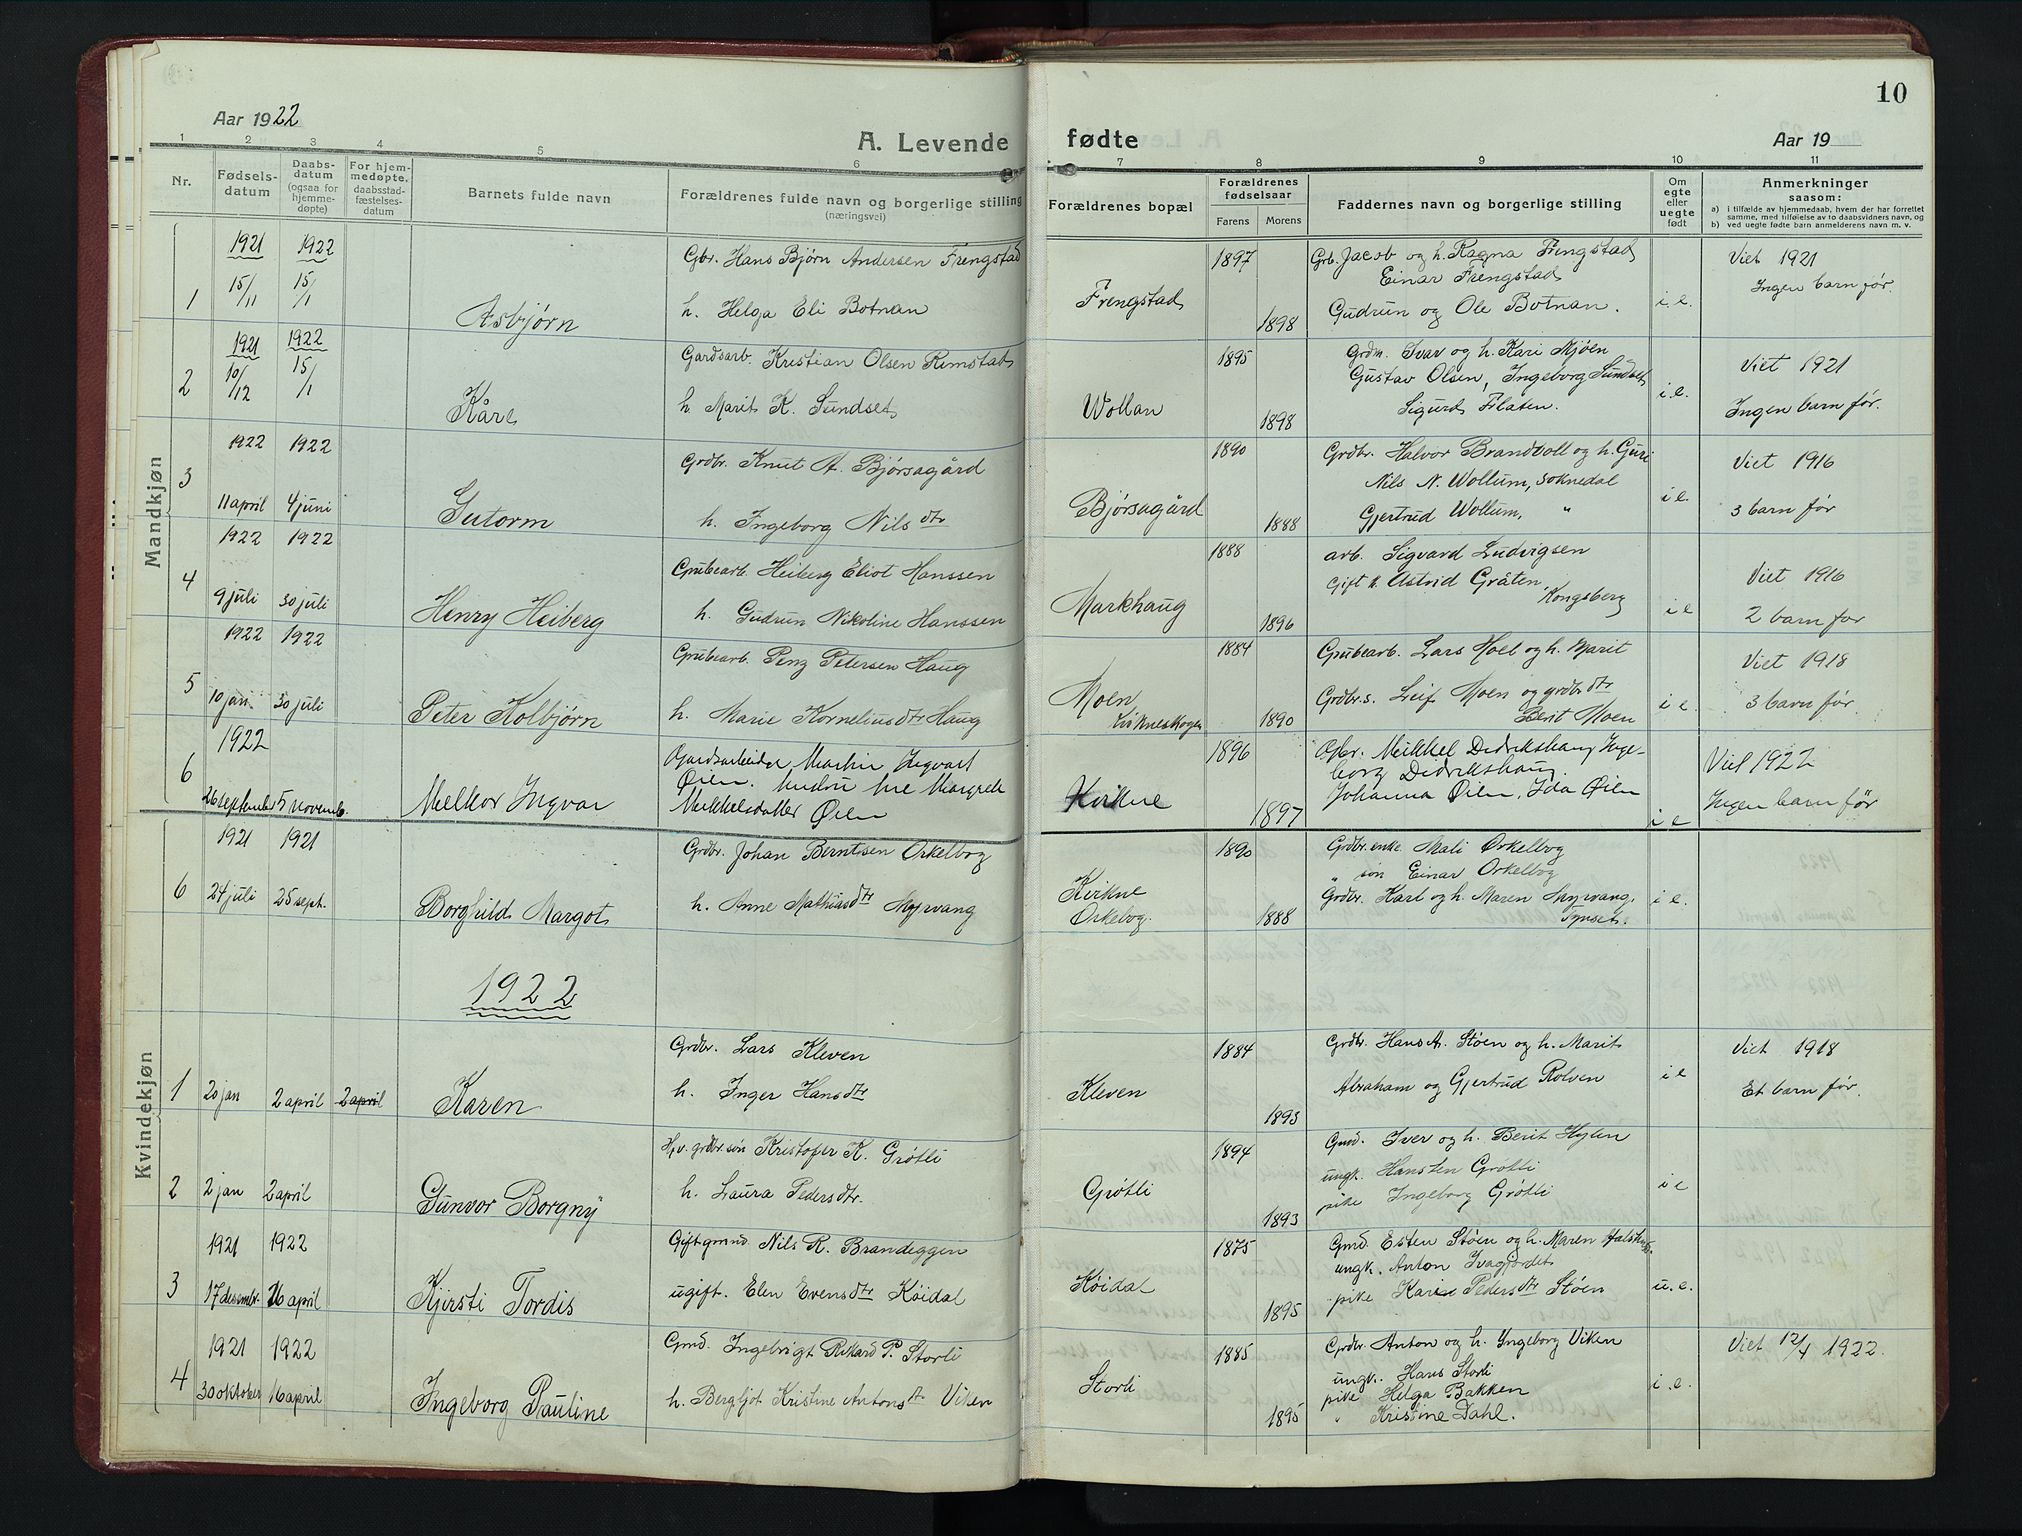 Aar 1922
A. Levende fødte
Aar 19
10
1 2 3 4 5 6 7 8 9 10 11
Nr.
Fødsels-
datum
Daabs-
datum
(ogsaa for
hjemme-
døpte)
For hjem-
medøpte,
daabsstad-
fæstelses-
datum
Barnets fulde navn
Forældrenes fulde navn og borgerlige stilling
(næringsvei)
Forældrenes bopæl
Forældrenes
fødselsaar
Farens Morens
Faddernes navn og borgerlige stilling
Om
egte
eller
uegte
født
Anmerkninger
saasom:
a) i tilfælde av hjemmedaab, hvem der har forrettet
samme, med tilføielse av to daabsvidners navn, og
b) ved uegte fødte barn anmelderens navn m. v.
Mandkjøn
1921 1922
1 15/11 15/1
Asbjørn
Gbr. Hans Bjørn Andersen Frengstad
h. Helga Eli Botnan
Frengstad
1897
1898
Grb. Jacob og h. Ragna Frengstad
Einar Frengstad
Gudrun og Ole Botnan.
i. e.
Viet 1921
Ingen barn før.
1921 1922
2 10/12 15/1
Kåre
Gardsarb. Kristian Olsen Rimstad
h Marit K. Sundset
Wollan
1895
1898
Grdm. Ivar og h. Kari Mjøen
Gustav Olsen, Ingeborg Sundset
Sigurd Flaten.
i. e.
Viet 1921
Ingen barn før.
1922 1922
3 11 april 4 juni
Gutorm
Grdbr. Knut A. Bjørsagård
h. Ingeborg Nilsdtr
Bjørsagård
1890
1888
Grdbr. Halvor Brandvoll og h. Guri
Nils N. Wollum, Soknedal
Gjertrud Wollum, "
i e.
Viet 1916
3 barn før
1922 1922
4 9 juli 30 juli
Henry Heiberg
Grubearb. Heiberg Eliot Hanssen
h. Gudrun Nikoline Hanssen
Markhaug
1888
1896
arb. Sigvard Ludvigsen
Gift k. Astrid Gråten,
Kongsberg
i e
Viet 1916
2 barn før
1922 1922
5 10 jan. 30 juli
Peter Kolbjørn
Grubearb. Penz Petersen Haug
h. Marie Korneliusdtr Haug
Moen
Kvikneskogen
1884
1890
Grubearb. Lars Moen og h. Marit
Grdbr.s. Leif Moen og grdbrdtr
Berit Moen
i e.
Viet 1918
3 barn før.
1922
6 26 september 5 novemb.
Melkor Ingvar
Gardsarbeider Martin Ingvart
Øien. hustru Mikkelsdatter Øien
Kvikne
1896
1897
Gbr. Mikkel Didrikshaug Inge-
borg Didrikshaug.
Johanna Øien, Ida Øien
i e
Viet 1922
Ingen barn før
Kvindekjøn
1921 1921
6 24 juli 25 sept.
Borghild Margot
Grdbr. Johan Berntsen Orkelbog
h. Anne Mathiasdtr Myrvang
Kvikne
Orkelbog.
1890
1888
Grdbr. enke Mali Orkelbog
" søn Einar Orkelbog
Grdbr. Karl og h. Maren Myrvang,
Tynset.
i e.
1922
1 20 jan 2 april 2 april
Karen
Grdbr. Lars Kleven
h. Inger Hansdtr
Kleven
1884
1893
Grdbr. Hans A. Støen og h. Marit
Abraham og Gjertrud Rolven
i e
Viet 1918
Et barn før.
2 2 jan 2 april
Gunvor Borgny
Hpv. grdbr.søn Kristofer K. Grøtli
h. Laura Pedersdtr.
Grøtli
1894
1893
Gmd. Iver og h. Berit Hylen
ungk. Hansten Grøtli
pike Ingeborg Grøtli
i e
1921 1922
3 17 desembr. 16 april
Kjersti Tordis
Gift gmnd. Nils R. Brandeggen
ugift. Elen Evensdtr Køidal
Køidal
1875
1895
Gmd. Esten Støen og h. Maren
ungk. Anton
pike Kari Pedersdtr Støen
u. e.
1921 1922
4 30 oktober 16 april
Ingeborg Pauline
Gmd. Ingebrigt Rikard P. Storli
h. Bergljot Kristine Antonsdt Viken
Storli
1885
1895
Grdbr. Anton og h. Ingeborg Viken
ungk. Hans Storli
pike Helga Bakken
" Kristine Dahl.
i. e.
Viet 12/4 1922.